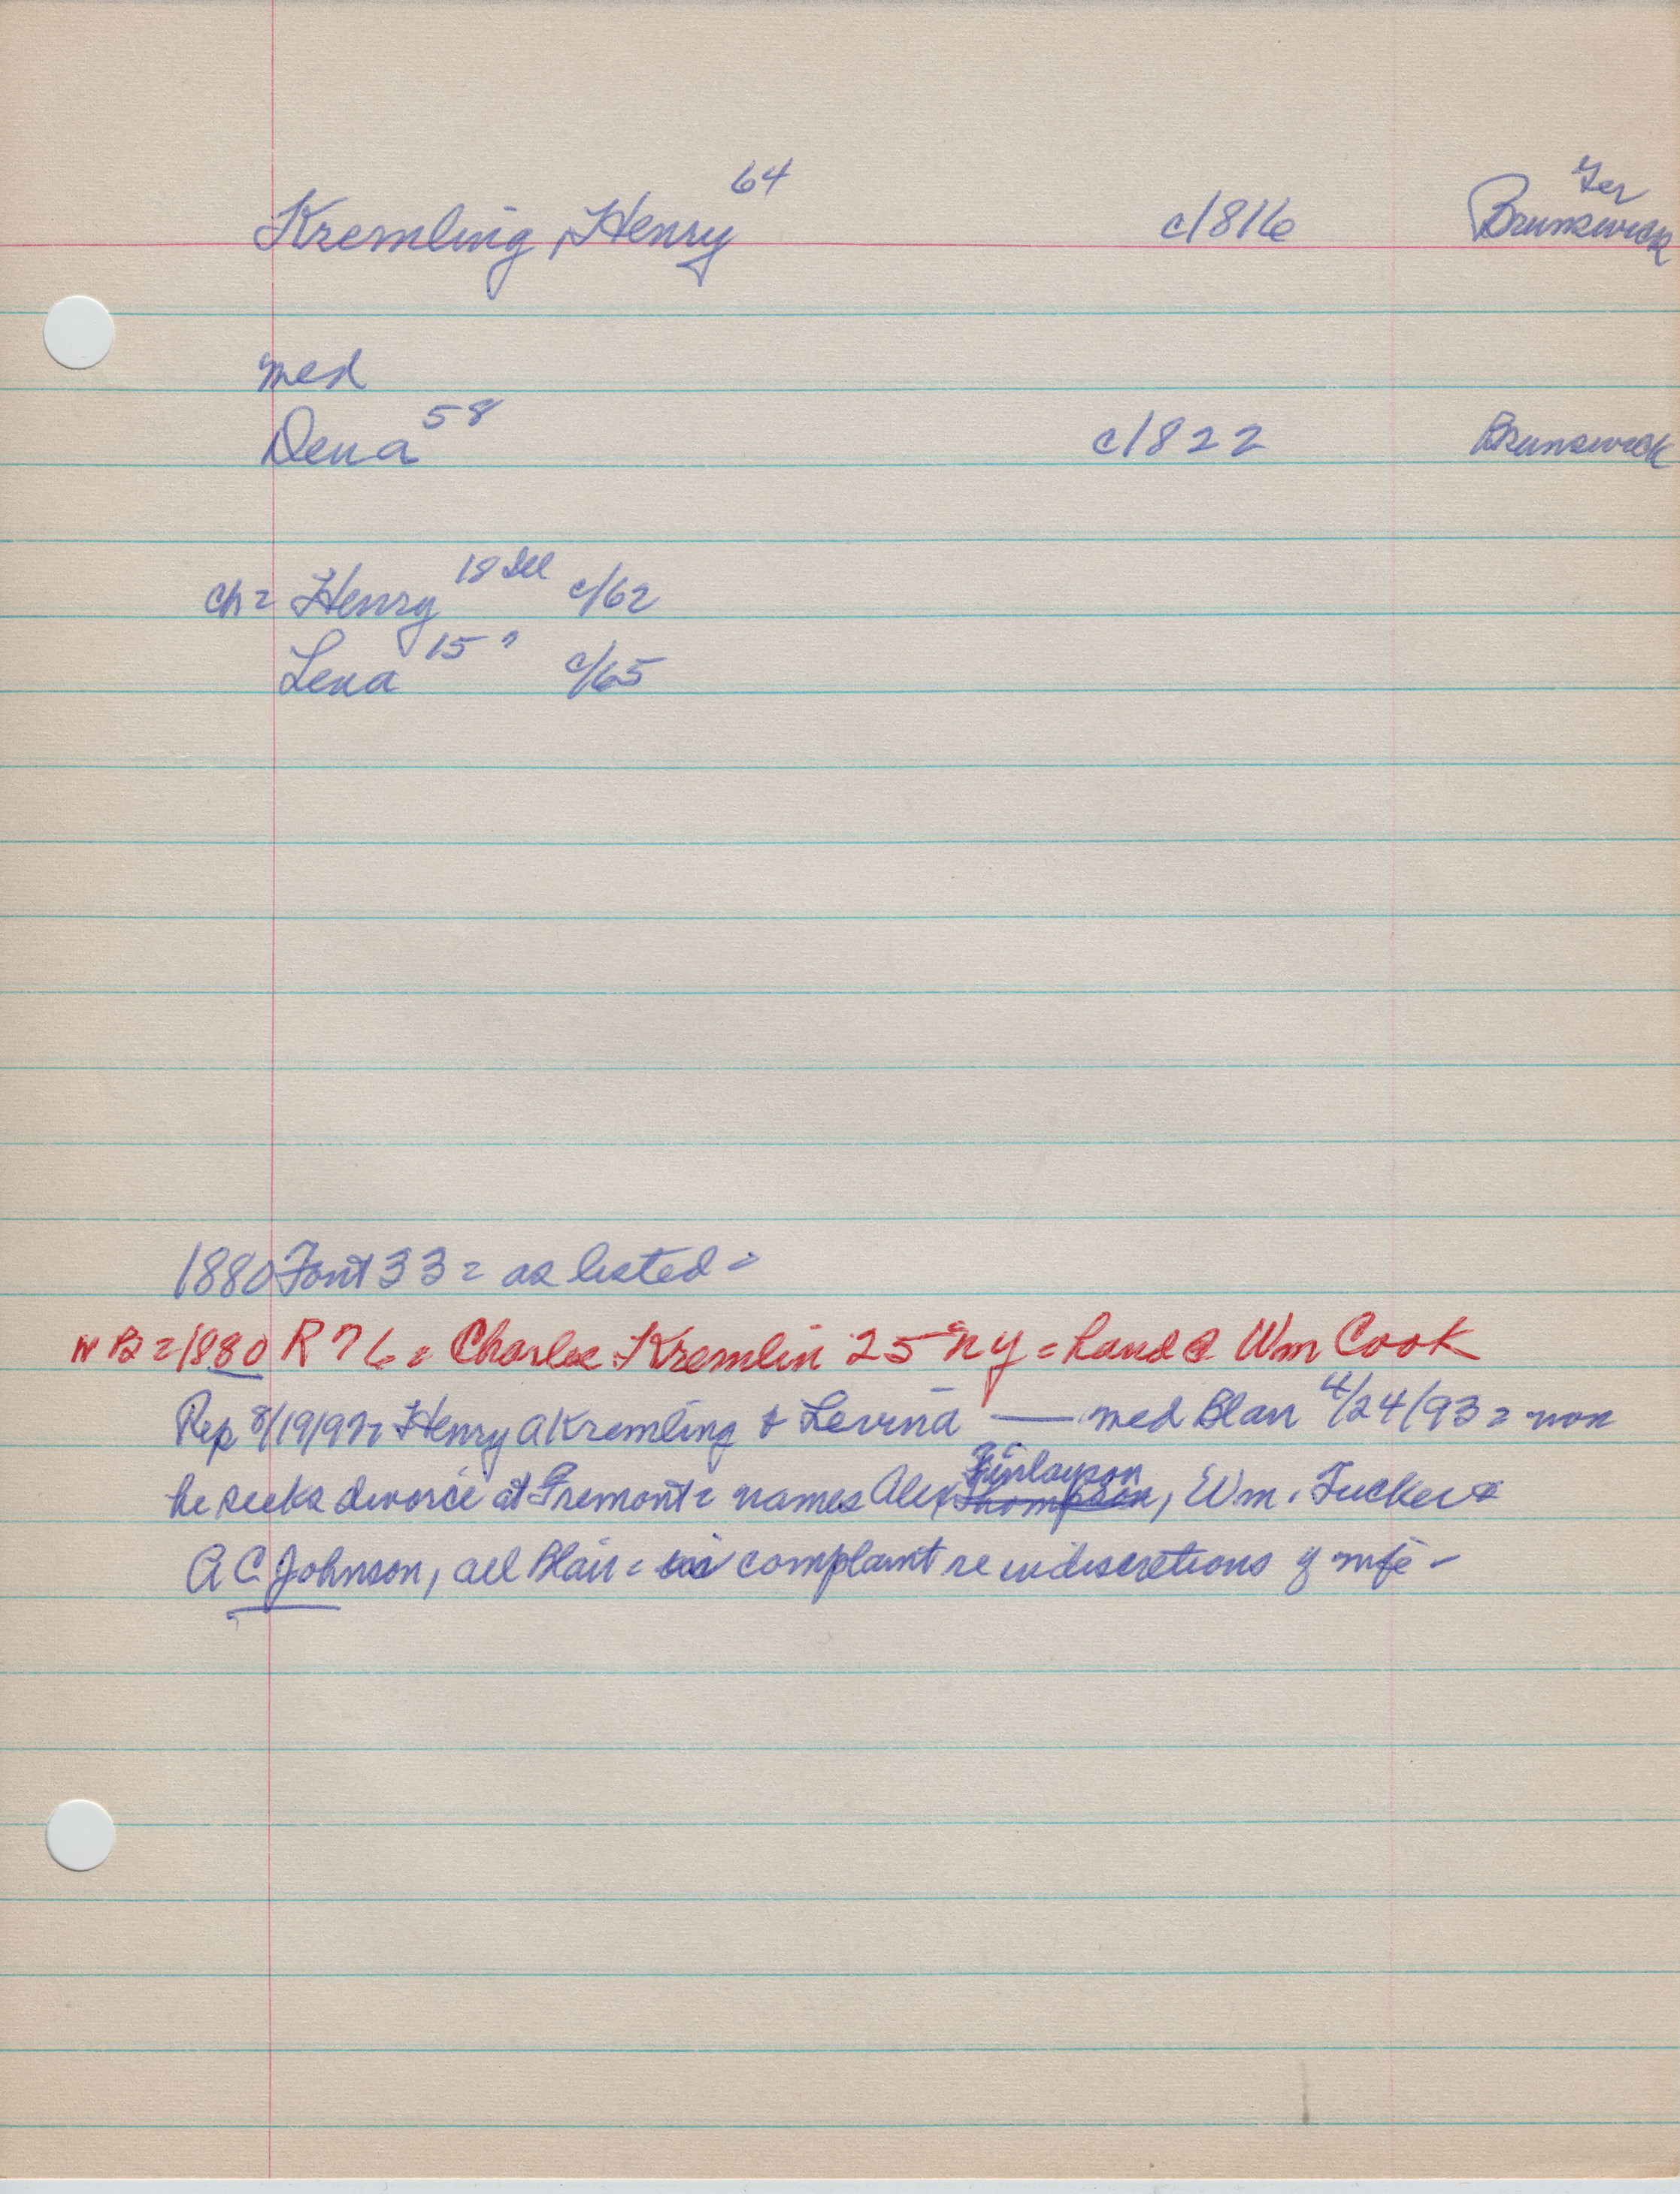 Kremling, Henry 64 c/1816 Ger Brunswick
med
Dena 58 c/1822 Brunswick
ch = Henry 18 Ill c/62
Lena 15 " c/65
1880 Font 33 = as listed =
NB = 1880 R 76 = Charles Kremlin 25 NY = hand @ Wm Cook
Rep 8/19/97 = Henry A Kremling & Levina — med Blair 4/24/93 = now
he seeks divorce at Fremont = names Alex Thompson Finlayson, Wm. Tucker &
A C Johnson, all Blair = in complaint re indiscretions of wife -